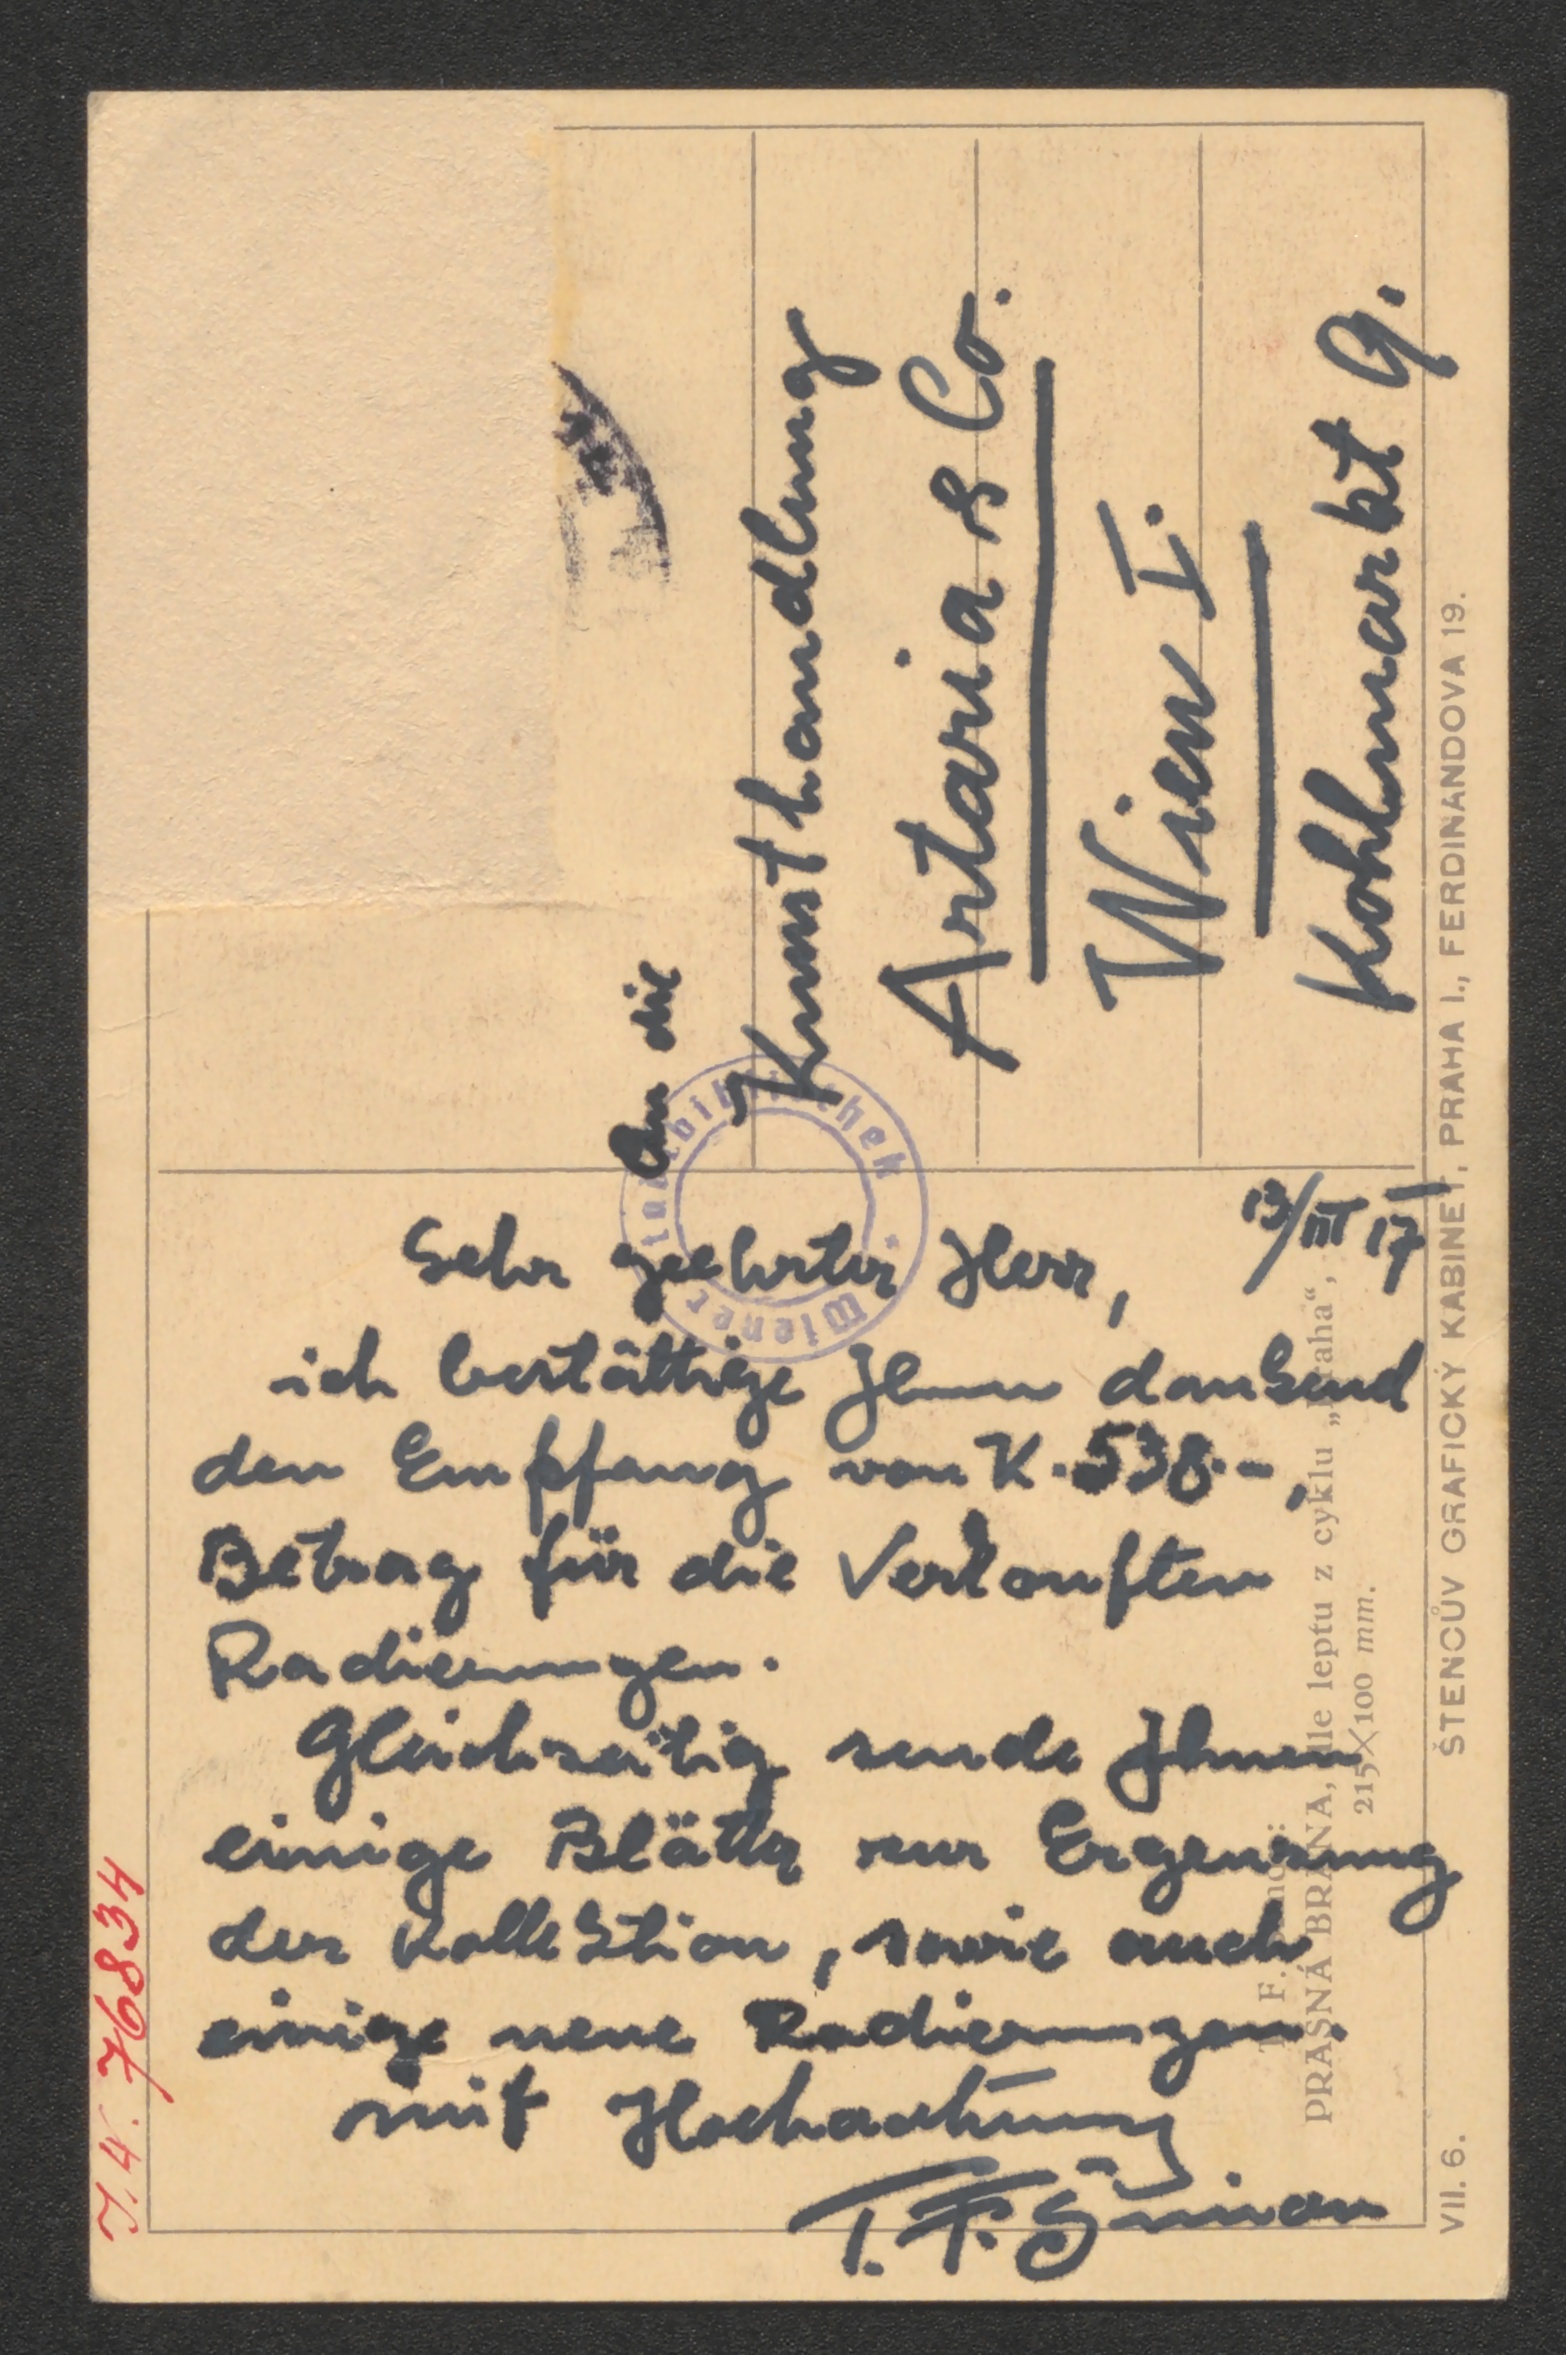 An die
Kunsthandlung
Artaria & Co.
Wien I.
Kohlmarkt 9.
13/III 17
Sehr geehrter Herr,
ich bestättige Ihnen dankend
den Empfang von K. 538.-,
Betrag für die Verkauften
Radierungen.
Gleichzeitig sende Ihnen
einige Blätter zur Ergenzung
der Kollektion, sowie auch
einige neue Radierungen.
mit Hochachtung
T. F. Šimon
T. F.
PRAŠNÁ BRÁNA, dle leptu z cyklu „Praha“,
215×100 mm.
VII. 6.
ŠTENCŮV GRAFICKÝ KABINET, PRAHA I., FERDINANDOVA 19.
Wiener Stadtbibliothek
J. N. 76834